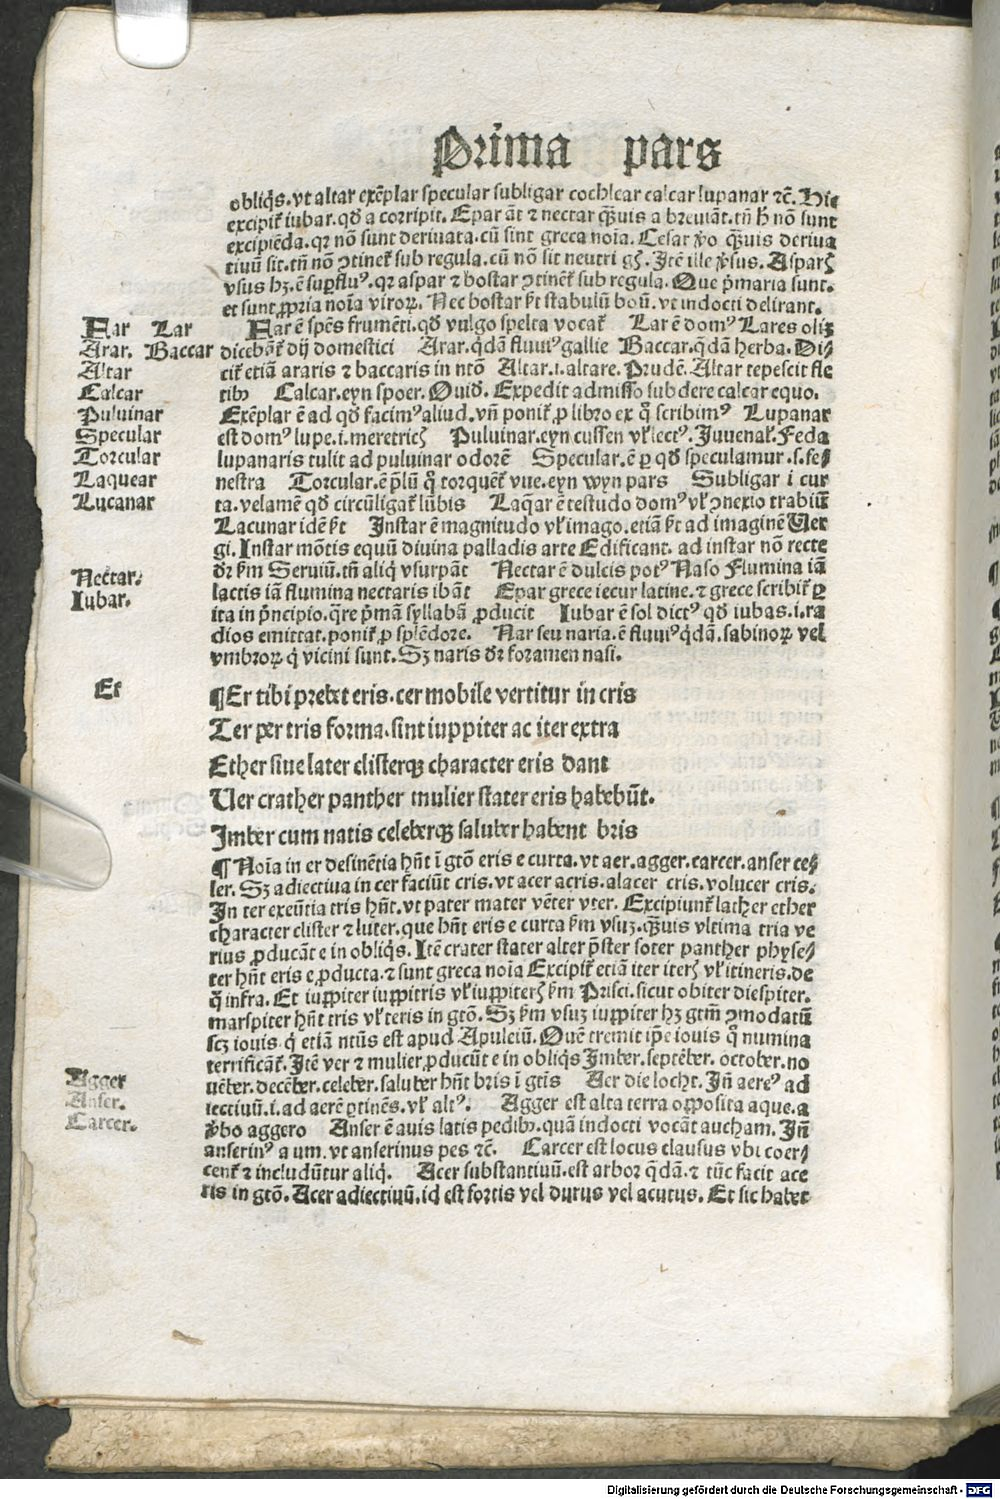 Prima pars
obliq̃s. vt altar exẽplar specular subligar cochlear calcar lupanar ⁊c̃. Hic
excipit̃ iubar. qd̃ a corripit. Epar ãt ⁊ nectar q̃uis a breuiãt. tñ h̃ nõ sunt
excipiẽda. qꝛ nõ sunt deriuata. cũ sint greca noĩa. Cesar ṽo q̃uis deriua
tiuũ sit. tñ nõ ↄtinet̃ sub regula. cũ nõ sit neutri gñ̃. Itẽ ille ṽsus. Aspar
vsus hꝫ. ẽ suꝑfluꝰ. qꝛ aspar ⁊ bostar ↄtinet̃ sub regula. Que p̃maria sunt.
et sunt ꝓpria noĩa viroꝝ. Nec bostar s̃t stabulũ boũ. vt indocti delirant.
Far Lar
Far ẽ spẽs frumẽti. qd̃ vulgo spelta vocat̃ Lar ẽ domꝰ Lares oliz
Arar. Baccar
dicebãt̃ dij domestici Arar. q̃dã fluuiꝰ gallie Baccar. q̃dã herba. Di⸗
Altar
cit̃ etiã araris ⁊ baccaris in ntõ Altar. i. altare. Prudẽ. Altar tepescit fle
Calcar
tibꝫ Calcar. eyn spoer. Ouid̃. Expedit admisso subdere calcar equo.
Puluinar
Exẽplar ẽ ad qd̃ facimꝰ aliud. vñ ponit̃ ꝓ libro ex q̃ scribimꝰ Lupanar
Specular
est domꝰ lupe. i. meretricꝭ Puluinar. eyn cussen vl̃ lectꝰ. Juuenal̃. Feda
Torcular
lupanaris tulit ad puluinar odorẽ Specular. ẽ ꝑ qd̃ speculamur. s. fe⸗
Laquear
nestra Torcular. ẽ p̃lũ q̃ torquẽt̃ vue. eyn wyn pars Subligar i cur
Lucanar
ta. velamẽ qd̃ circũligat̃ lũbis Laq̃ar ẽ testudo domꝰ vl̃ ↄnexio trabiũ
Lacunar idẽ s̃t Instar ẽ magnitudo vl̃ imago. etiã s̃t ad imaginẽ Uer
gi. Instar mõtis equũ diuina palladis arte Edificant. ad instar nõ recte
dr̃ s̃m Seruiũ. tñ aliq̃ vsurpãt Nectar ẽ dulcis potꝰ Naso Flumina iã
Nectar.
lactis iã flumina nectaris ibãt Epar grece iecur latine. ⁊ grece scribit̃ ꝑ
Iubar.
ita in p̃ncipio. q̃re p̃mã syllabã ꝓducit Iubar ẽ sol dictꝰ qd̃ iubas. i. ra
dios emittat. ponit̃ ꝓ splẽdore. Nar seu naria. ẽ fluuiꝰ q̃dã. sabinoꝝ vel
vmbroꝝ q̃ vicini sunt. Sꝫ naris dr̃ foramen nasi.
Er
¶Er tibi prebet eris. cer mobile vertitur in cris
Ter per tris forma. sint iuppiter ac iter extra
Ether siue later clisterqꝫ character eris dant
Uer crather panther mulier stater eris habebũt.
Imber cum natis celeberqꝫ saluber habent bris
¶ Noĩa in er desinẽtia hñt ĩ gtõ eris e curta. vt aer. agger. carcer. anser ce⸗
ler. Sꝫ adiectiua in cer faciũt cris. vt acer acris. alacer cris. volucer cris.
In ter exeũtia tris hñt. vt pater mater vẽter vter. Excipiunt̃ lather ether
character clister ⁊ luter. que hñt eris e curta s̃m vsuꝫ. q̃uis vltima tria ve
rius ꝓducãt e in obliq̃s. Itẽ crater stater alter p̃ster soter panther physe⸗
ter hñt eris e ꝓducta. ⁊ sunt greca noĩa Excipit̃ etiã iter iterꝭ vl̃ itineris. de
q̃ infra. Et iuꝑpiter iuꝑpitris vl̃ iuꝑpiterꝭ s̃m Prisci. sicut obiter diespiter.
marspiter hñt tris vl̃ teris in gtõ. Sꝫ s̃m vsuꝫ iuꝑpiter hꝫ gtm̃ ↄmodatũ
scꝫ iouis q̃ etiã ntũs est apud Apuleiũ. Quẽ tremit ip̃e iouis q̃ numina
terrificãt̃. Itẽ ver ⁊ mulier. ꝓducũt e in obliq̃s Imber. septẽber. october. no
Agger
uẽber. decẽber. celeber. saluber hñt bris ĩ gtĩs Aer die locht. Iñ aereꝰ ad
Anser.
iectiuũ. i. ad aerẽ ꝑtinẽs. vl̃ altꝰ. Agger est alta terra opposita aque. a
Carcer.
ṽbo aggero Anser ẽ auis latis pedibꝫ. quã indocti vocãt aucham. Iñ
anserinꝰ a um. vt anserinus pes ⁊c̃. Carcer est locus clausus vbi coer⸗
cent̃ ⁊ includũtur aliq̃. Acer substantiuũ. est arbor q̃dã. ⁊ tũc facit ace
ris in gtõ. Acer adiectiuũ. id est fortis vel durus vel acutus. Et sic habet
Digitalisierung gefördert durch die Deutsche Forschungsgemeinschaft - DFG